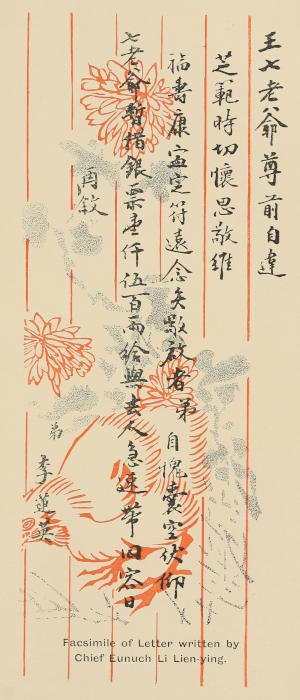 王七老爺尊前自違
芝範時切懷思敬維
福壽康寧定符遠念矣敬啟者弟自愧囊空伏仰
七老爺暫借銀票壹仟伍百兩給與去人急速帶回容日
再敘
弟 李蓮英
Facsimile of Letter written by
Chief Eunuch Li Lien-ying.